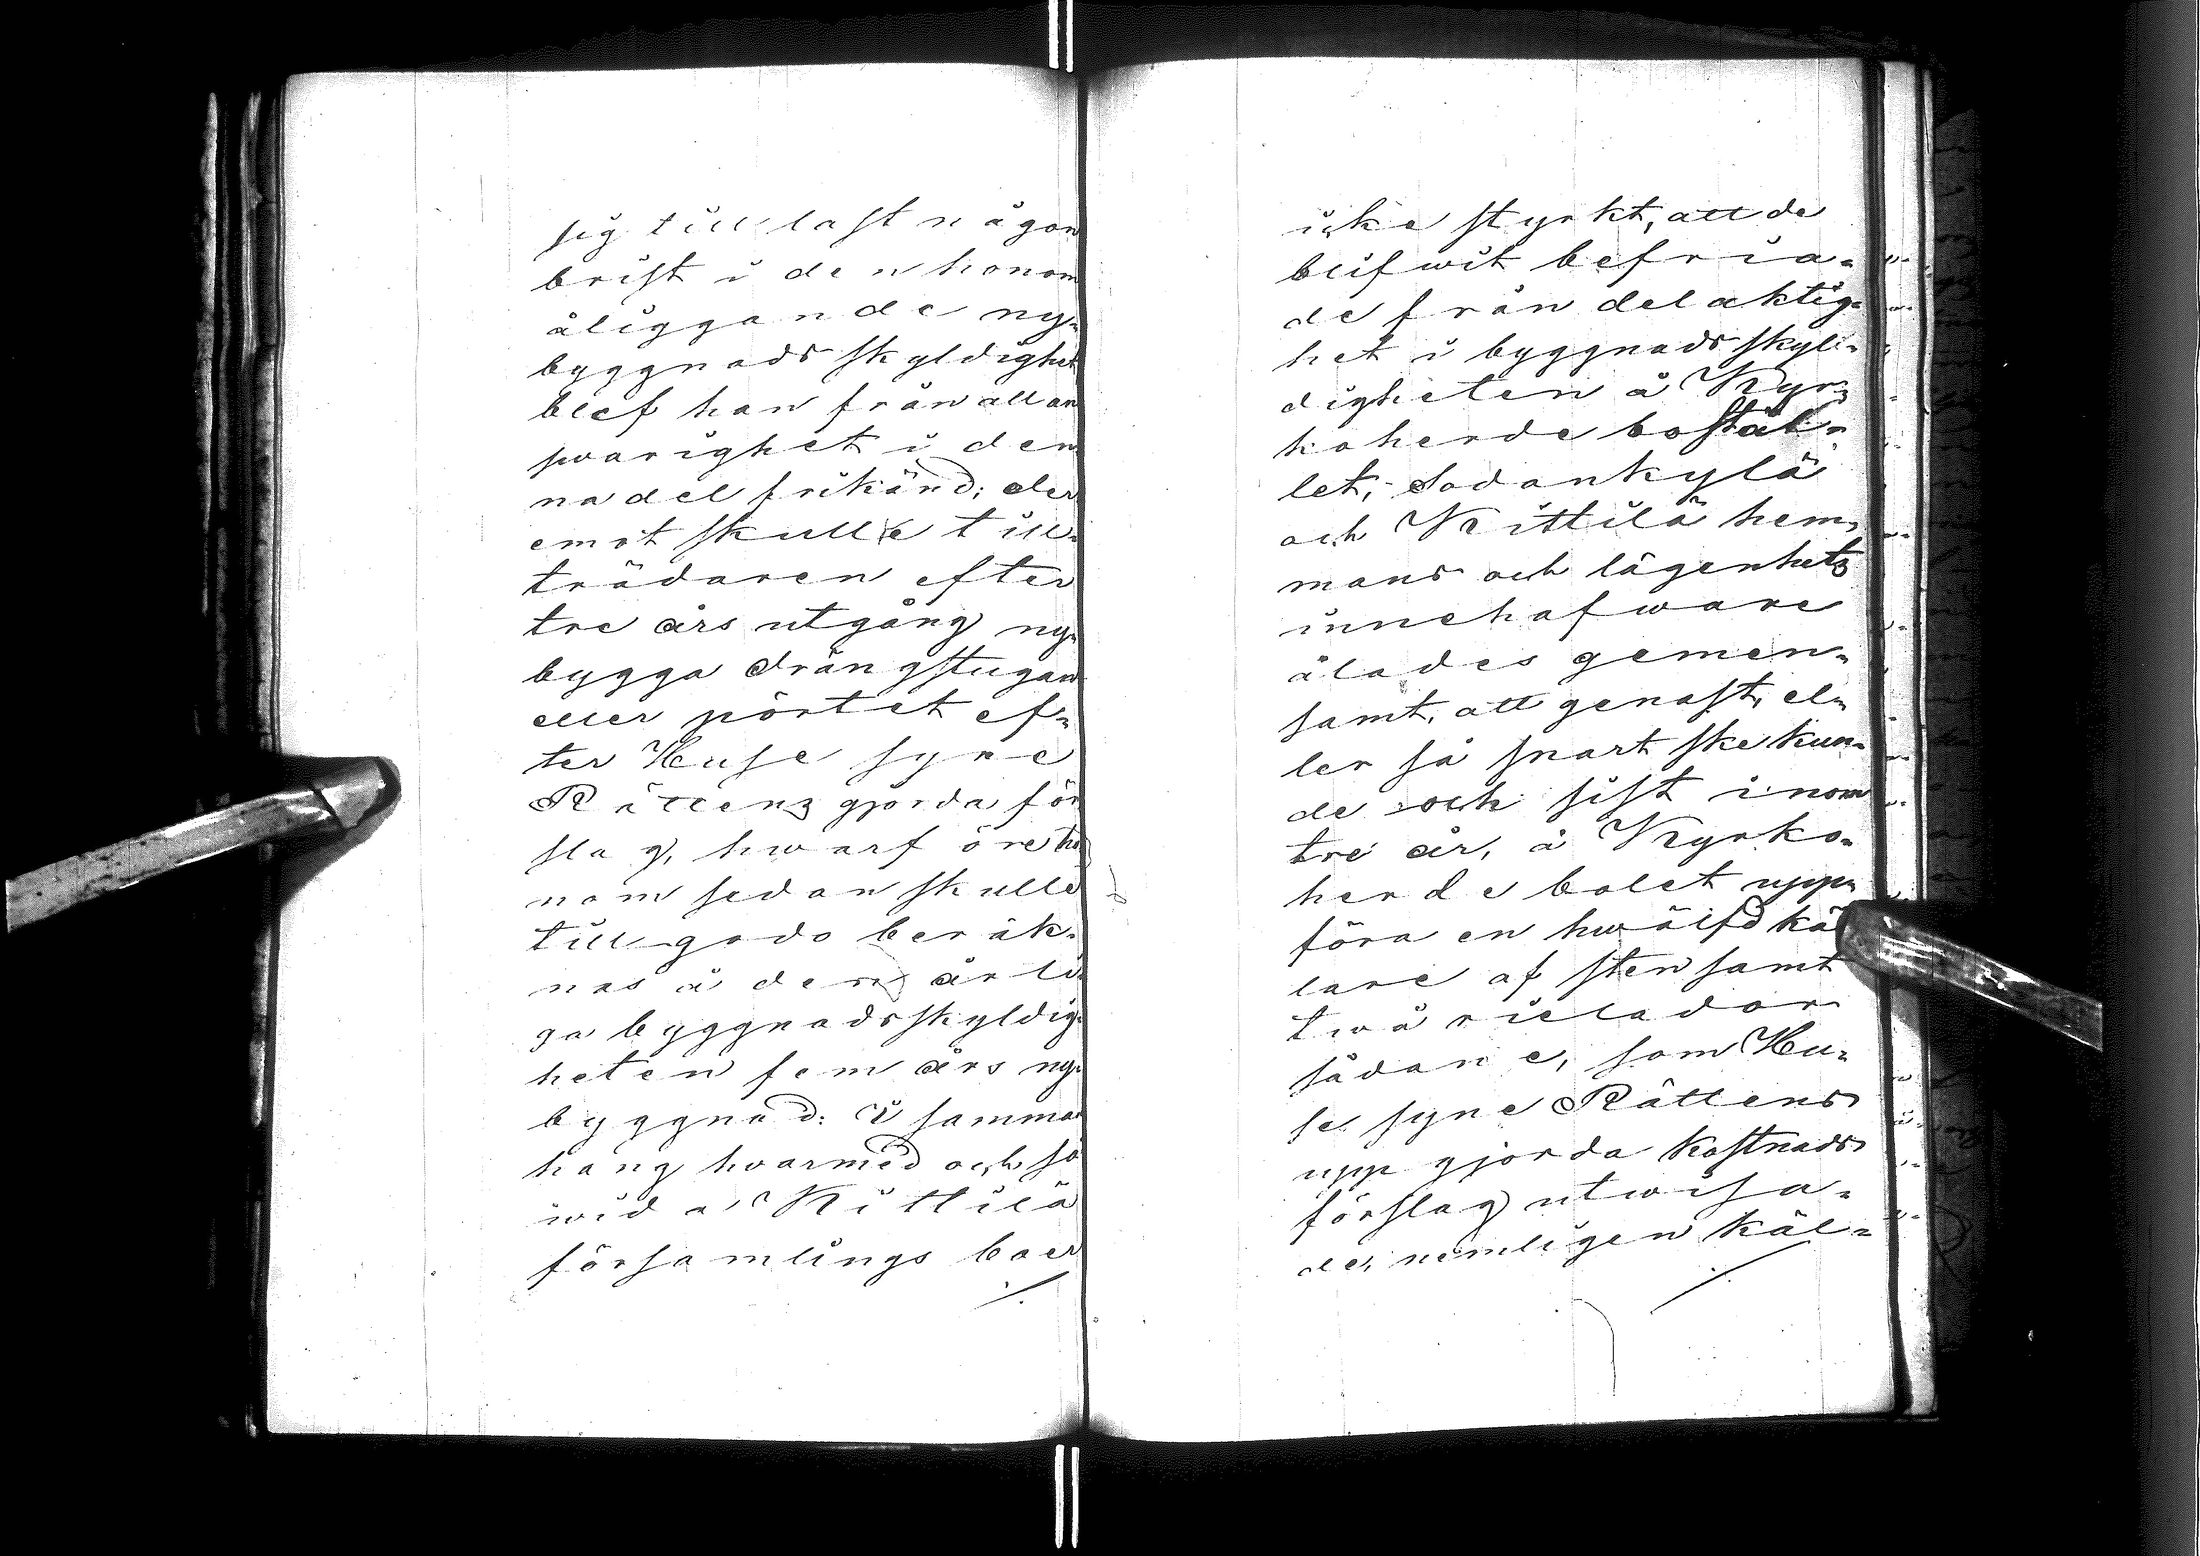 sig till last någon
brist i den honom
åliggande ny-
byggnads skyldighet
blef han från all an
svarighet i den
na del frikänd; der
emot skulle till-
trädaren efter
tre års utgång ny-
bygga drängstugan
eller pörtet ef-
ter Huse syne
Rättens gjorda för
slag, hwarföre ho
nom sedan skulle
till godo beräk-
nas å den årli
ga byggnadsskyldig-
heten fem års ny-
byggnad: I samman
hang hvarmed och så
wida Kittilä
församlings boer
icke styrkt, att de
blifwit befria-
de från delaktig-
het i byggnads skyl-
digheten å Kyr-
koherde bostäl-
let, Sodankylä
och Kittilä hem-
mans och lägenhets
innehafware
ålades gemen-
samt, att genast, el-
ler så snart ske kun-
de och sist inom
tre år, å Kyrko-
herde bolet upp-
föra en hwälfd käl
lare af sten samt
twå rielador
sådane, som Hu-
se syne Rättens
upp gjorda kostnads
förslag utwisa-
de, nemligen käl-